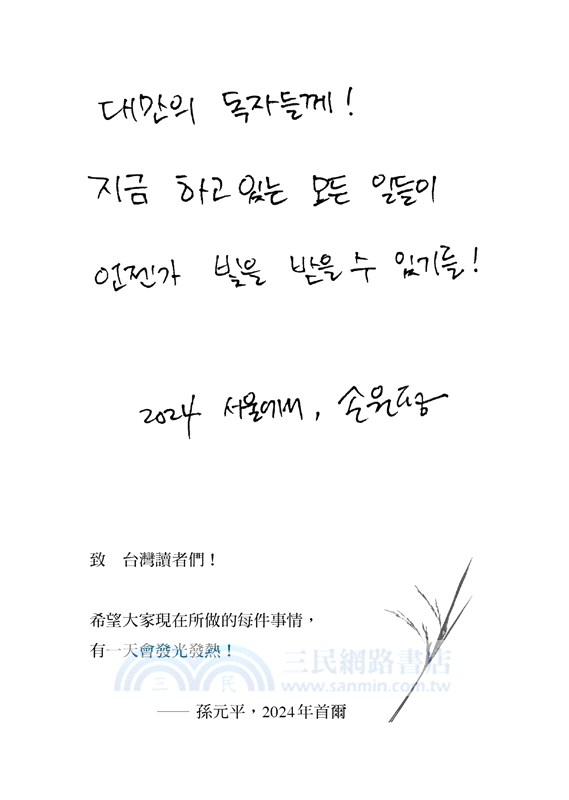 대만의 독자들께!
지금 하고 있는 모든 일들이
언젠가 빛을 받을 수 있기를!
2024 서울에서, 손원평
致　台灣讀者們！
希望大家現在所做的每件事情，
有一天會發光發熱！
三民網路書店
三 民
www.sanmin.com.tw
—— 孫元平，2024年首爾